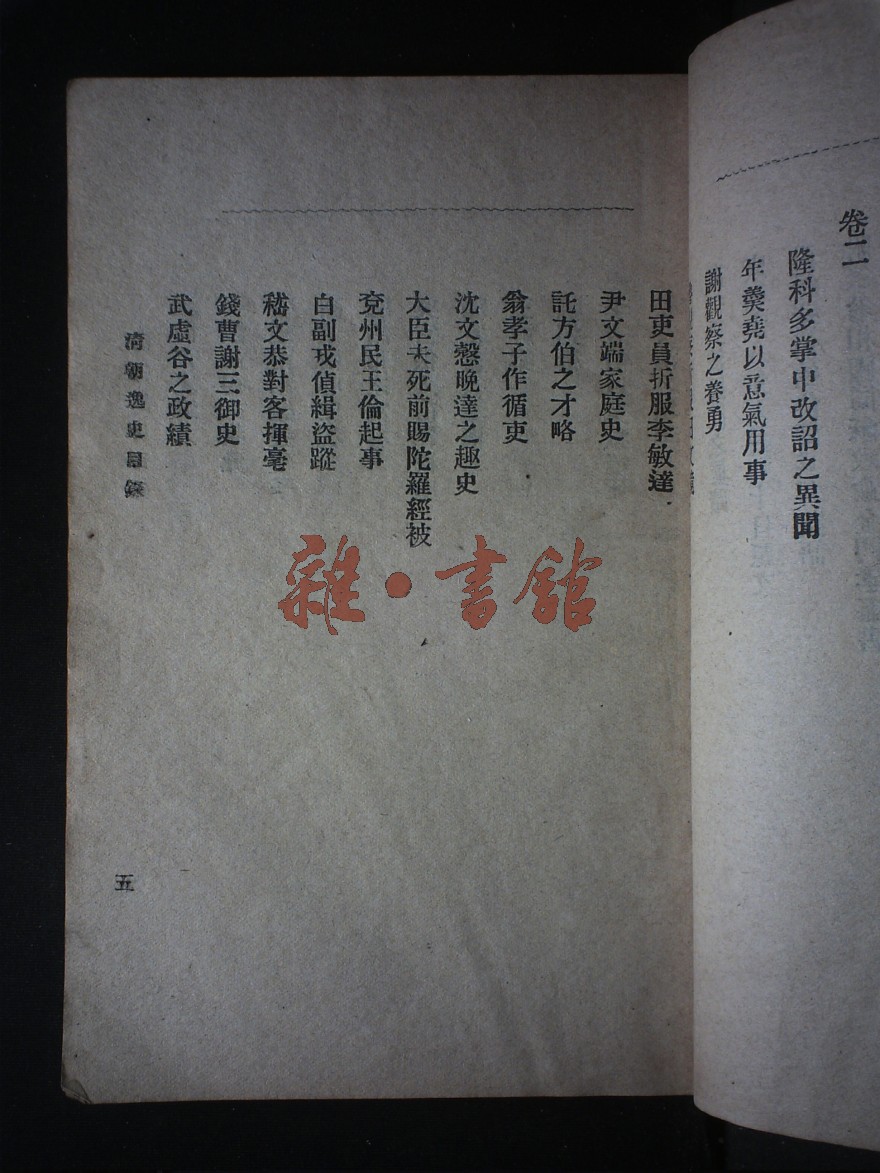 卷二
隆科多掌中改詔之異聞
年羹堯以意氣用事
謝觀察之養勇
田吏員折服李敏達
尹文端家庭史
託方伯之才略
翁孝子作循吏
沈文慤晚達之趣史
大臣未死前賜陀羅經被
兗州民王倫起事
白副戎偵緝盜蹤
嵇文恭對客揮毫
錢曹謝三御史
武虛谷之政績
清朝逸史目錄
五
雜·書館